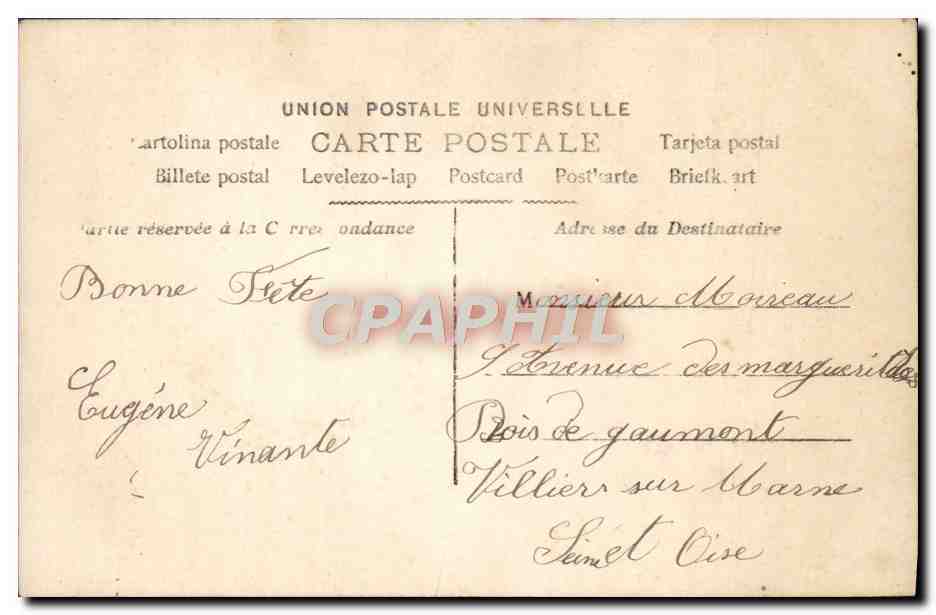 UNION POSTALE UNIVERSELLE
Cartolina postale CARTE POSTALE Tarjeta postal
Billete postal Levelezo-lap Postcard Postkarte Briefkaart
Partie réservée à la Correspondance
Adresse du Destinataire
Bonne Fête
Eugéne
Vinante
Monsieur Moireau
Avenue des marguerites
Bois de gaumont
Villiers sur Marne
Seine et Oise
CPAPHIL